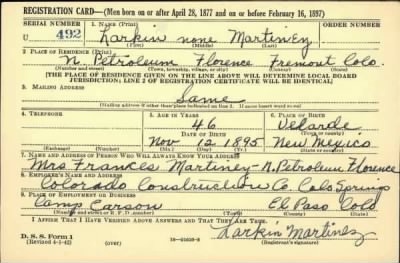 REGISTRATION CARD—(Men born on or after April 28, 1877 and on or before February 16, 1897)
SERIAL NUMBER 1. NAME (Print)
U 492 Larkin none Martinez
(First) (Middle) (Last)
2. PLACE OF RESIDENCE (Print)
N. Petroleum Florence Fremont Colo.
(Number and street) (Town, township, village, or city) (County) (State)
[THE PLACE OF RESIDENCE GIVEN ON THE LINE ABOVE WILL DETERMINE LOCAL BOARD
JURISDICTION; LINE 2 OF REGISTRATION CERTIFICATE WILL BE IDENTICAL]
3. MAILING ADDRESS
Same
[Mailing address if other than place indicated on line 2. If same insert word same]
4. TELEPHONE 5. AGE IN YEARS 6. PLACE OF BIRTH
46 Velarde
DATE OF BIRTH (Town or county)
Nov 12 1895 New Mexico
(Exchange) (Number) (Mo.) (Day) (Yr.) (State or country)
7. NAME AND ADDRESS OF PERSON WHO WILL ALWAYS KNOW YOUR ADDRESS
Mrs Frances Martinez - N. Petroleum Florence
8. EMPLOYER'S NAME AND ADDRESS
Colorado Construction Co. Colo Springs
9. PLACE OF EMPLOYMENT OR BUSINESS
Camp Carson El Paso Colo
(Number and street or R. F. D. number) (Town) (County) (State)
I AFFIRM THAT I HAVE VERIFIED ABOVE ANSWERS AND THAT THEY ARE TRUE.
D. S. S. Form 1 Larkin Martinez
(Revised 4-1-42) (over) (Registrant's signature)